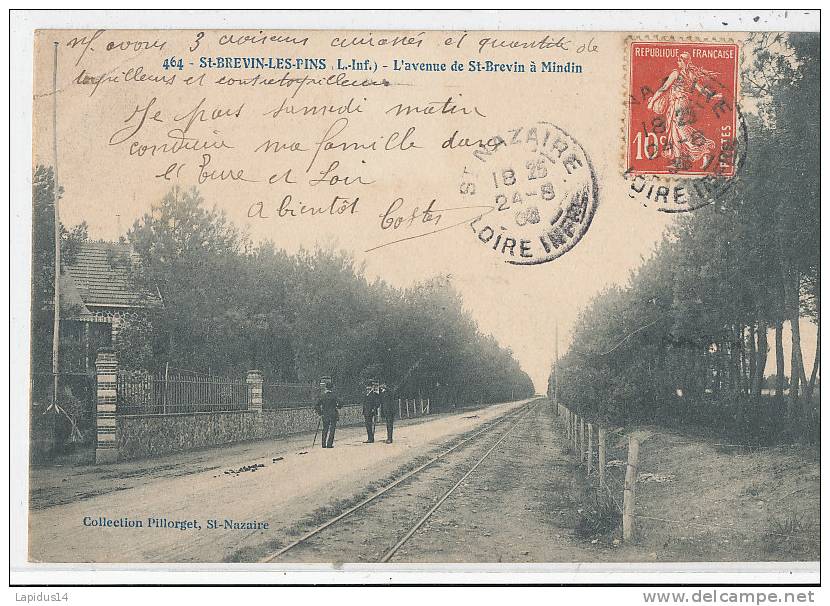 Ns avons 3 croiseurs cuirassés et quantité de
464 - St-BREVIN-LES-PINS (L.-Inf.) - L'avenue de St-Brevin à Mindin
torpilleurs et contretorpilleurs
Je pars samedi matin
conduire ma famille dans
l'Eure et Loir
A bientôt
REPUBLIQUE FRANÇAISE
10c
POSTES
St NAZAIRE
18 25
24-8
08
LOIRE INFRE
NAZAIRE
18 25
LOIRE INFRE
Collection Pillorget, St-Nazaire
© Lapidus14
delcampe.net